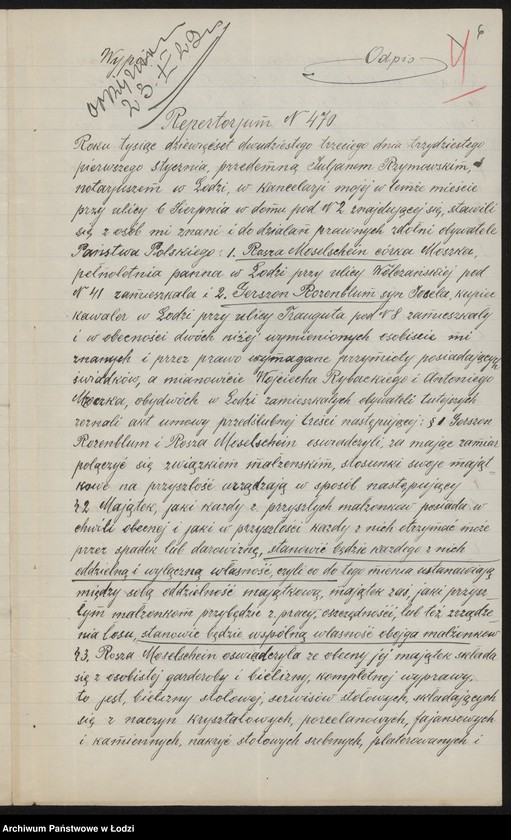 6
Wypis
Odpis
otrzymałem
23 X 29
4
Repertorjum N 470
Roku tysiąc dziewięset dwudziestego trzeciego dnia trzydziestego
pierwszego stycznia, przedemną Juljanem Rzymowskim,
notarjuszem w Łodzi, w kancelarji mojej w temże mieście
przy ulicy 6 Sierpnia w domu pod N 2 znajdującej się, stawili
się z osób mi znani i do działań prawnych zdolni obywatele
Państwa Polskiego: 1. Rosza Moselschein córka Moszka,
pełnoletnia panna w Łodzi przy ulicy Wólczańskiej pod
N 41 zamieszkała i 2. Gerszon Rozenblum syn Josela, kupiec
kawaler w Łodzi przy ulicy Trauguta pod N 8 zamieszkały
i w obecności dwóch niżej wymienionych osobiście mi
znanych i przez prawo wymagane przymioty posiadających
świadków, a mianowicie Wojciecha Rybackiego i Antoniego
Moczka, obydwóch w Łodzi zamieszkałych obywateli tutejszych
zeznali akt umowy przedślubnej treści następującej: § 1 Gerszon
Rozenblum i Rosza Moselschein oświadczyli, że mając zamiar
połączyć się związkiem małżeńskim, stosunki swoje mająt-
kowe na przyszłość urządzają w sposób następujący
§ 2 Majątek, jaki każdy z przyszłych małżonków posiada w
chwili obecnej i jaki w przyszłości każdy z nich otrzymać może
przez spadek lub darowiznę, stanowić będzie każdego z nich
oddzielną i wyłączną własność, czyli co do tego mienia ustanawiają
między sobą oddzielność majątkową, majątek zaś, jaki przysz-
łym małżonkom przybędzie z pracy, oszczędności, lub też zrządze-
nia losu, stanowić będzie wspólną własność obojga małżonków
§ 3. Rosza Moselschein oświadczyła że obecny jej majątek składa
się z osobistej garderoby i bielizny, kompletnej wyprawy,
to jest, bielizny stołowej, serwisów stołowych, składających
się z naczyń kryształowych, porcelanowych, fajansowych
i kamiennych, nakryć stołowych srebrnych, platerowanych i
Archiwum Państwowe w Łodzi